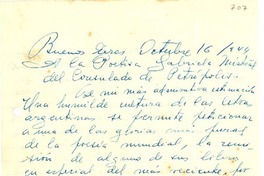 707
Buenos Aires Octubre 16/944
A la Poetisa Gabriela Mistral
del Consulado de Petrópolis.
De mi más admirativa estimación
Una humilde cultora de las letras
argentinas se permite peticionar
a una de las glorias más puras
de la poesía mundial, la remi-
sión de alguno de sus libros
en especial del más reciente, por